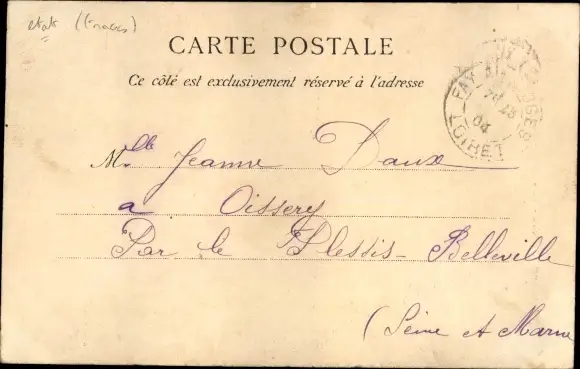 CARTE POSTALE
Ce côté est exclusivement réservé à l'adresse
FAY AUX LOGES
04
LOIRET
Mlle Jeanne Daux
a Oissery
Par le Plessis-Belleville
(Seine et Marne